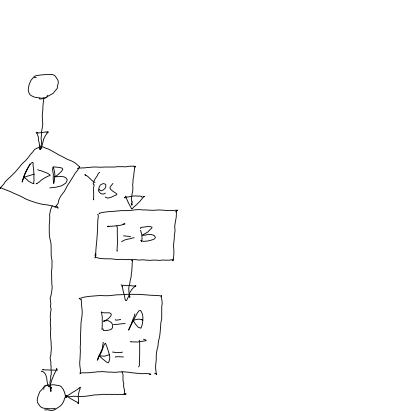 A>B
Yes
T=B
B=A
A=T